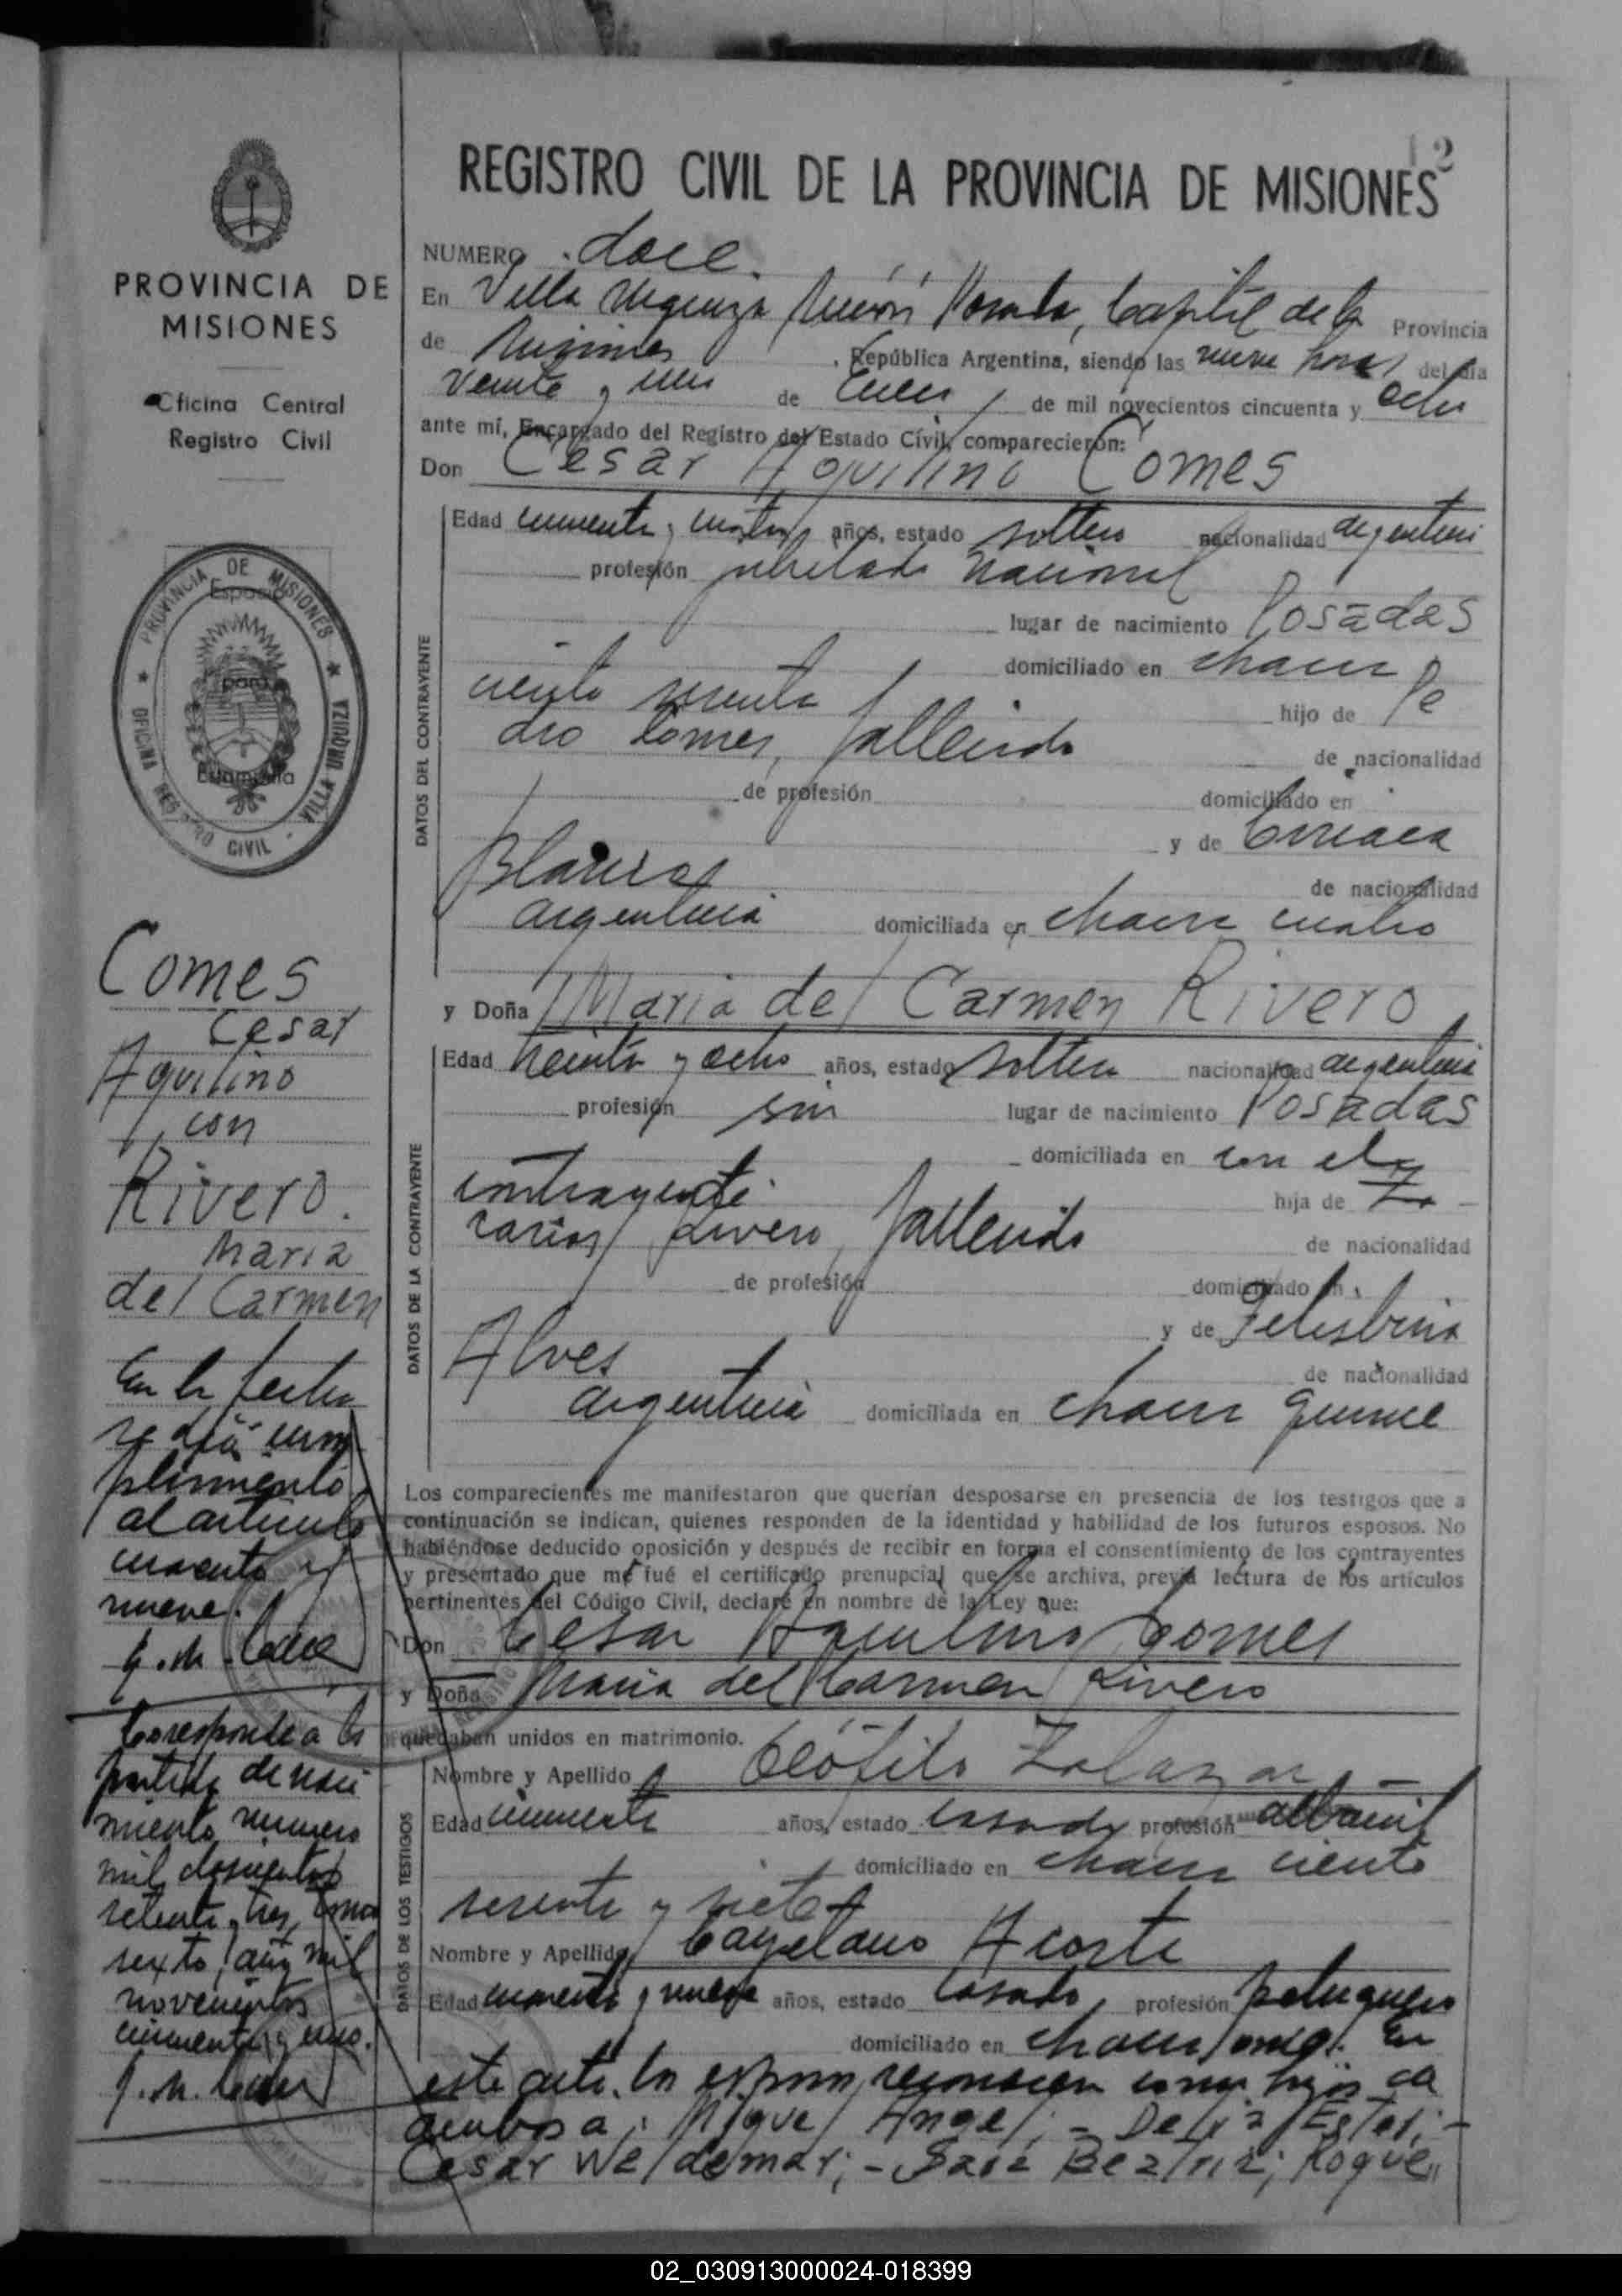 12
REGISTRO CIVIL DE LA PROVINCIA DE MISIONES
PROVINCIA DE
MISIONES
Oficina Central
Registro Civil
PROVINCIA DE MISIONES
Espacio
para
Estampilla
OFICINA REGISTRO CIVIL - VILLA URQUIZA
Comes
Cesar
Aquilino
con
Rivero.
Maria
del Carmen
En la fecha
se dió cum
plimiento
al artículo
cuarenta y
nueve.
Corresponde a la
partida de naci
miento número
mil doscientos
setenta y tres, tomo
sexto, año mil
novecientos
cincuenta y uno.
NUMERO doce.
En Villa Urquiza, Posadas, Capital de la Provincia
de Misiones, República Argentina, siendo las nueve horas del día
veinte y uno de Enero de mil novecientos cincuenta y ocho
ante mí, Encargado del Registro del Estado Civil, comparecieron:
Don Cesar Aquilino Comes
DATOS DEL CONTRAYENTE
Edad cincuenta y cuatro años, estado soltero nacionalidad argentino
profesión jubilado Nacional
lugar de nacimiento Posadas
domiciliado en chacra
ciento sesenta hijo de Pe
dro Comes, fallecido de nacionalidad
de profesión domiciliado en
y de Ciriaca
de nacionalidad
argentina domiciliada en chacra cuatro
y Doña Maria del Carmen Rivero
DATOS DE LA CONTRAYENTE
Edad treinta y ocho años, estado soltera nacionalidad argentina
profesión sin lugar de nacimiento Posadas
domiciliada en con el
contrayente hija de Za
carias Rivero, fallecido de nacionalidad
de profesión domiciliado en
y de Felisbina
Alves de nacionalidad
argentina domiciliada en chacra quince
Los comparecientes me manifestaron que querían desposarse en presencia de los testigos que a
continuación se indican, quienes responden de la identidad y habilidad de los futuros esposos. No
habiéndose deducido oposición y después de recibir en forma el consentimiento de los contrayentes
y presentado que me fué el certificado prenupcial que se archiva, previa lectura de los artículos
pertinentes del Código Civil, declaré en nombre de la Ley que:
Don Cesar Aquilino Comes
y Doña Maria del Carmen Rivero
quedaban unidos en matrimonio.
DATOS DE LOS TESTIGOS
Nombre y Apellido Teófilo Zalazar
Edad cincuenta años, estado casado profesión albañil
domiciliado en chacra ciento
sesenta y siete
Nombre y Apellido Cayetano Acosta
Edad cuarenta y nueve años, estado casado, profesión peluquero
domiciliado en chacra once. En
este acto los esposos reconocen como hijos de
ambos a: Miguel Angel; - Delia Ester; -
Cesar Weldemar; - Sara Beatriz; Roque
02_030913000024-018399